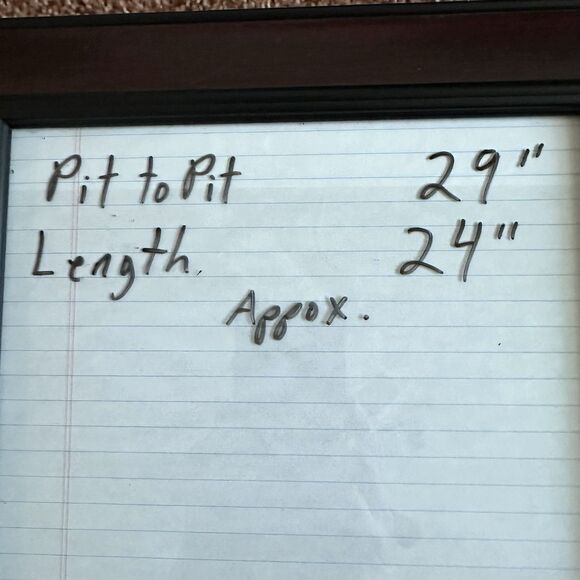 Pit to Pit 29"
Length. 24"
Appox.